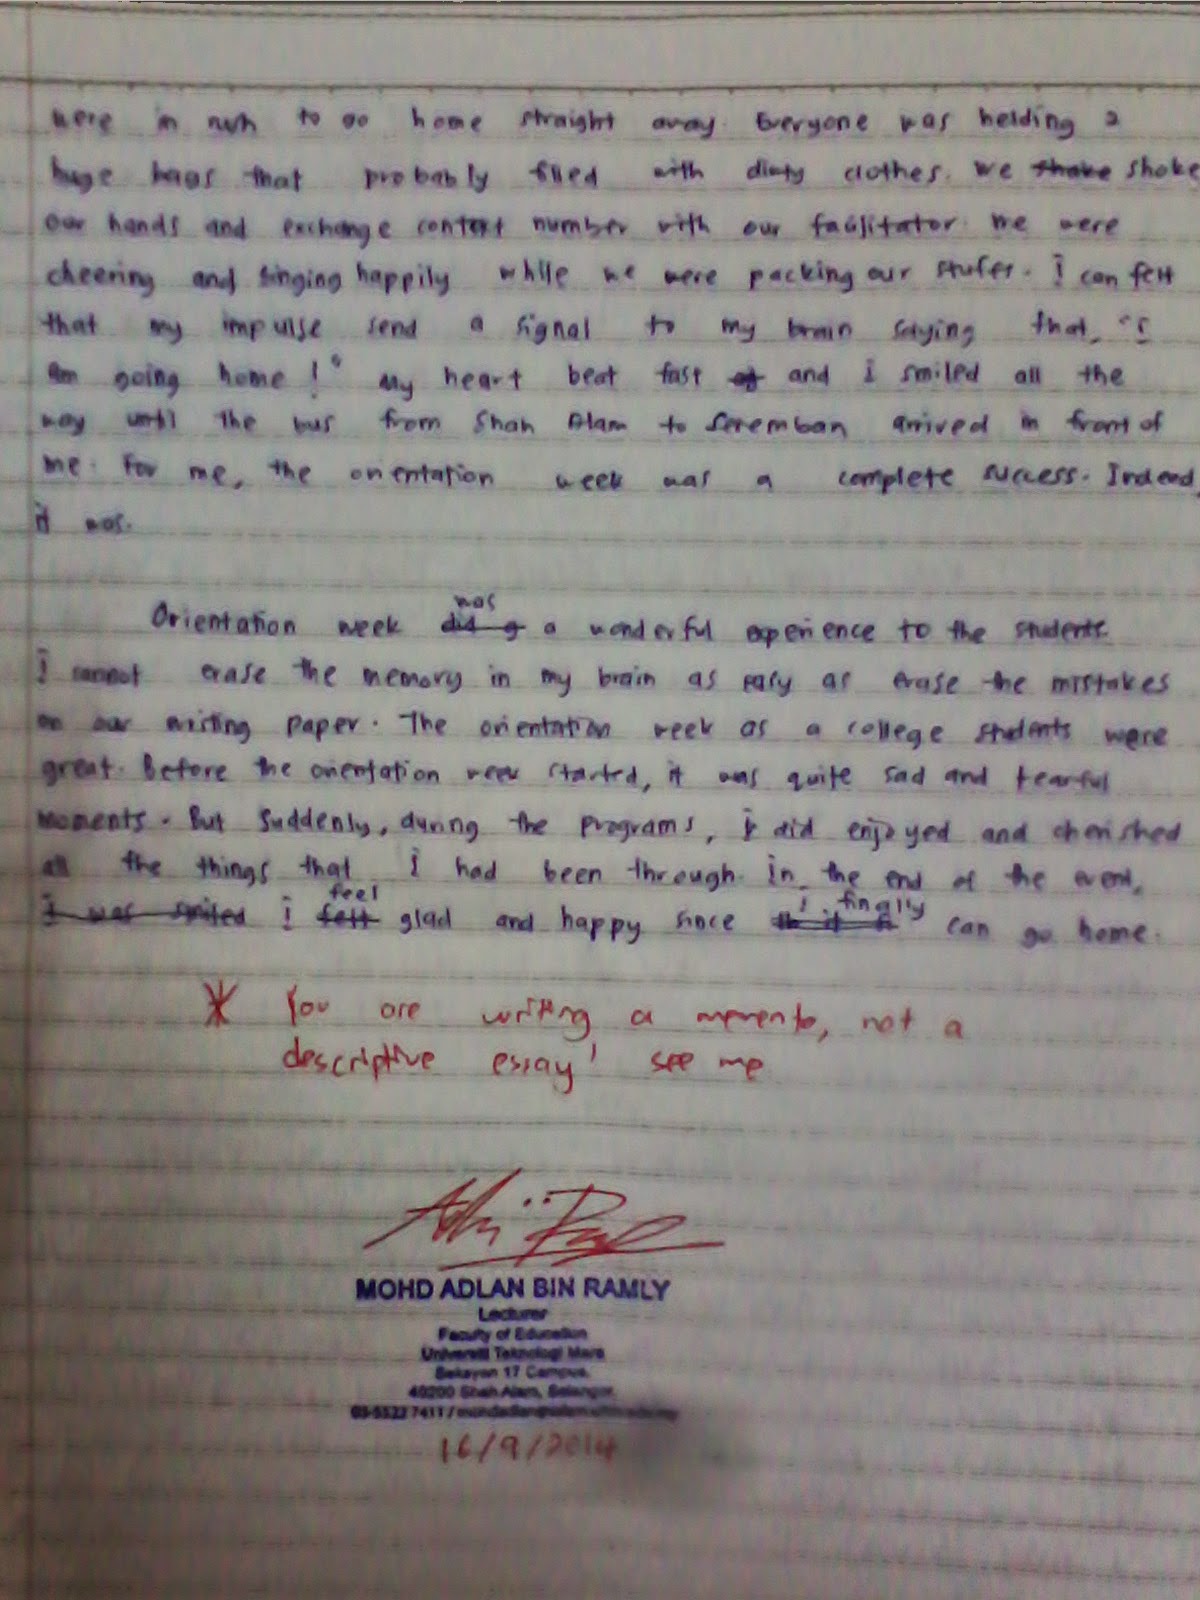 were in rush to go home straight away. Everyone was holding 2
huge bags that probably filled with dirty clothes. We shake shoke
our hands and exchange contact number with our facilitator. We were
cheering and singing happily while we were packing our stufes. I can felt
that my impulse send a signal to my brain saying that, "I
am going home!" My heart beat fast and I smiled all the
way until the bus from Shah Alam to Seremban arrived in front of
me. For me, the orientation week was a complete success. Indeed,
it was.
Orientation week did was a wonderful experience to the students.
I cannot erase the memory in my brain as easy as erase the mistakes
on our writing paper. The orientation week as a college students were
great. Before the orientation week started, it was quite sad and tearful
moments. But suddenly, during the programs, I did enjoyed and cherished
all the things that I had been through. In the end of the event,
I was smiled I felt feel glad and happy since I finally can go home.
* You are writing a memento, not a
descriptive essay! see me
MOHD ADLAN BIN RAMLY
Lecturer
Faculty of Education
Universiti Teknologi Mara
Seksyen 17 Campus,
40200 Shah Alam, Selangor.
03-5522 7411 /
16/9/2014